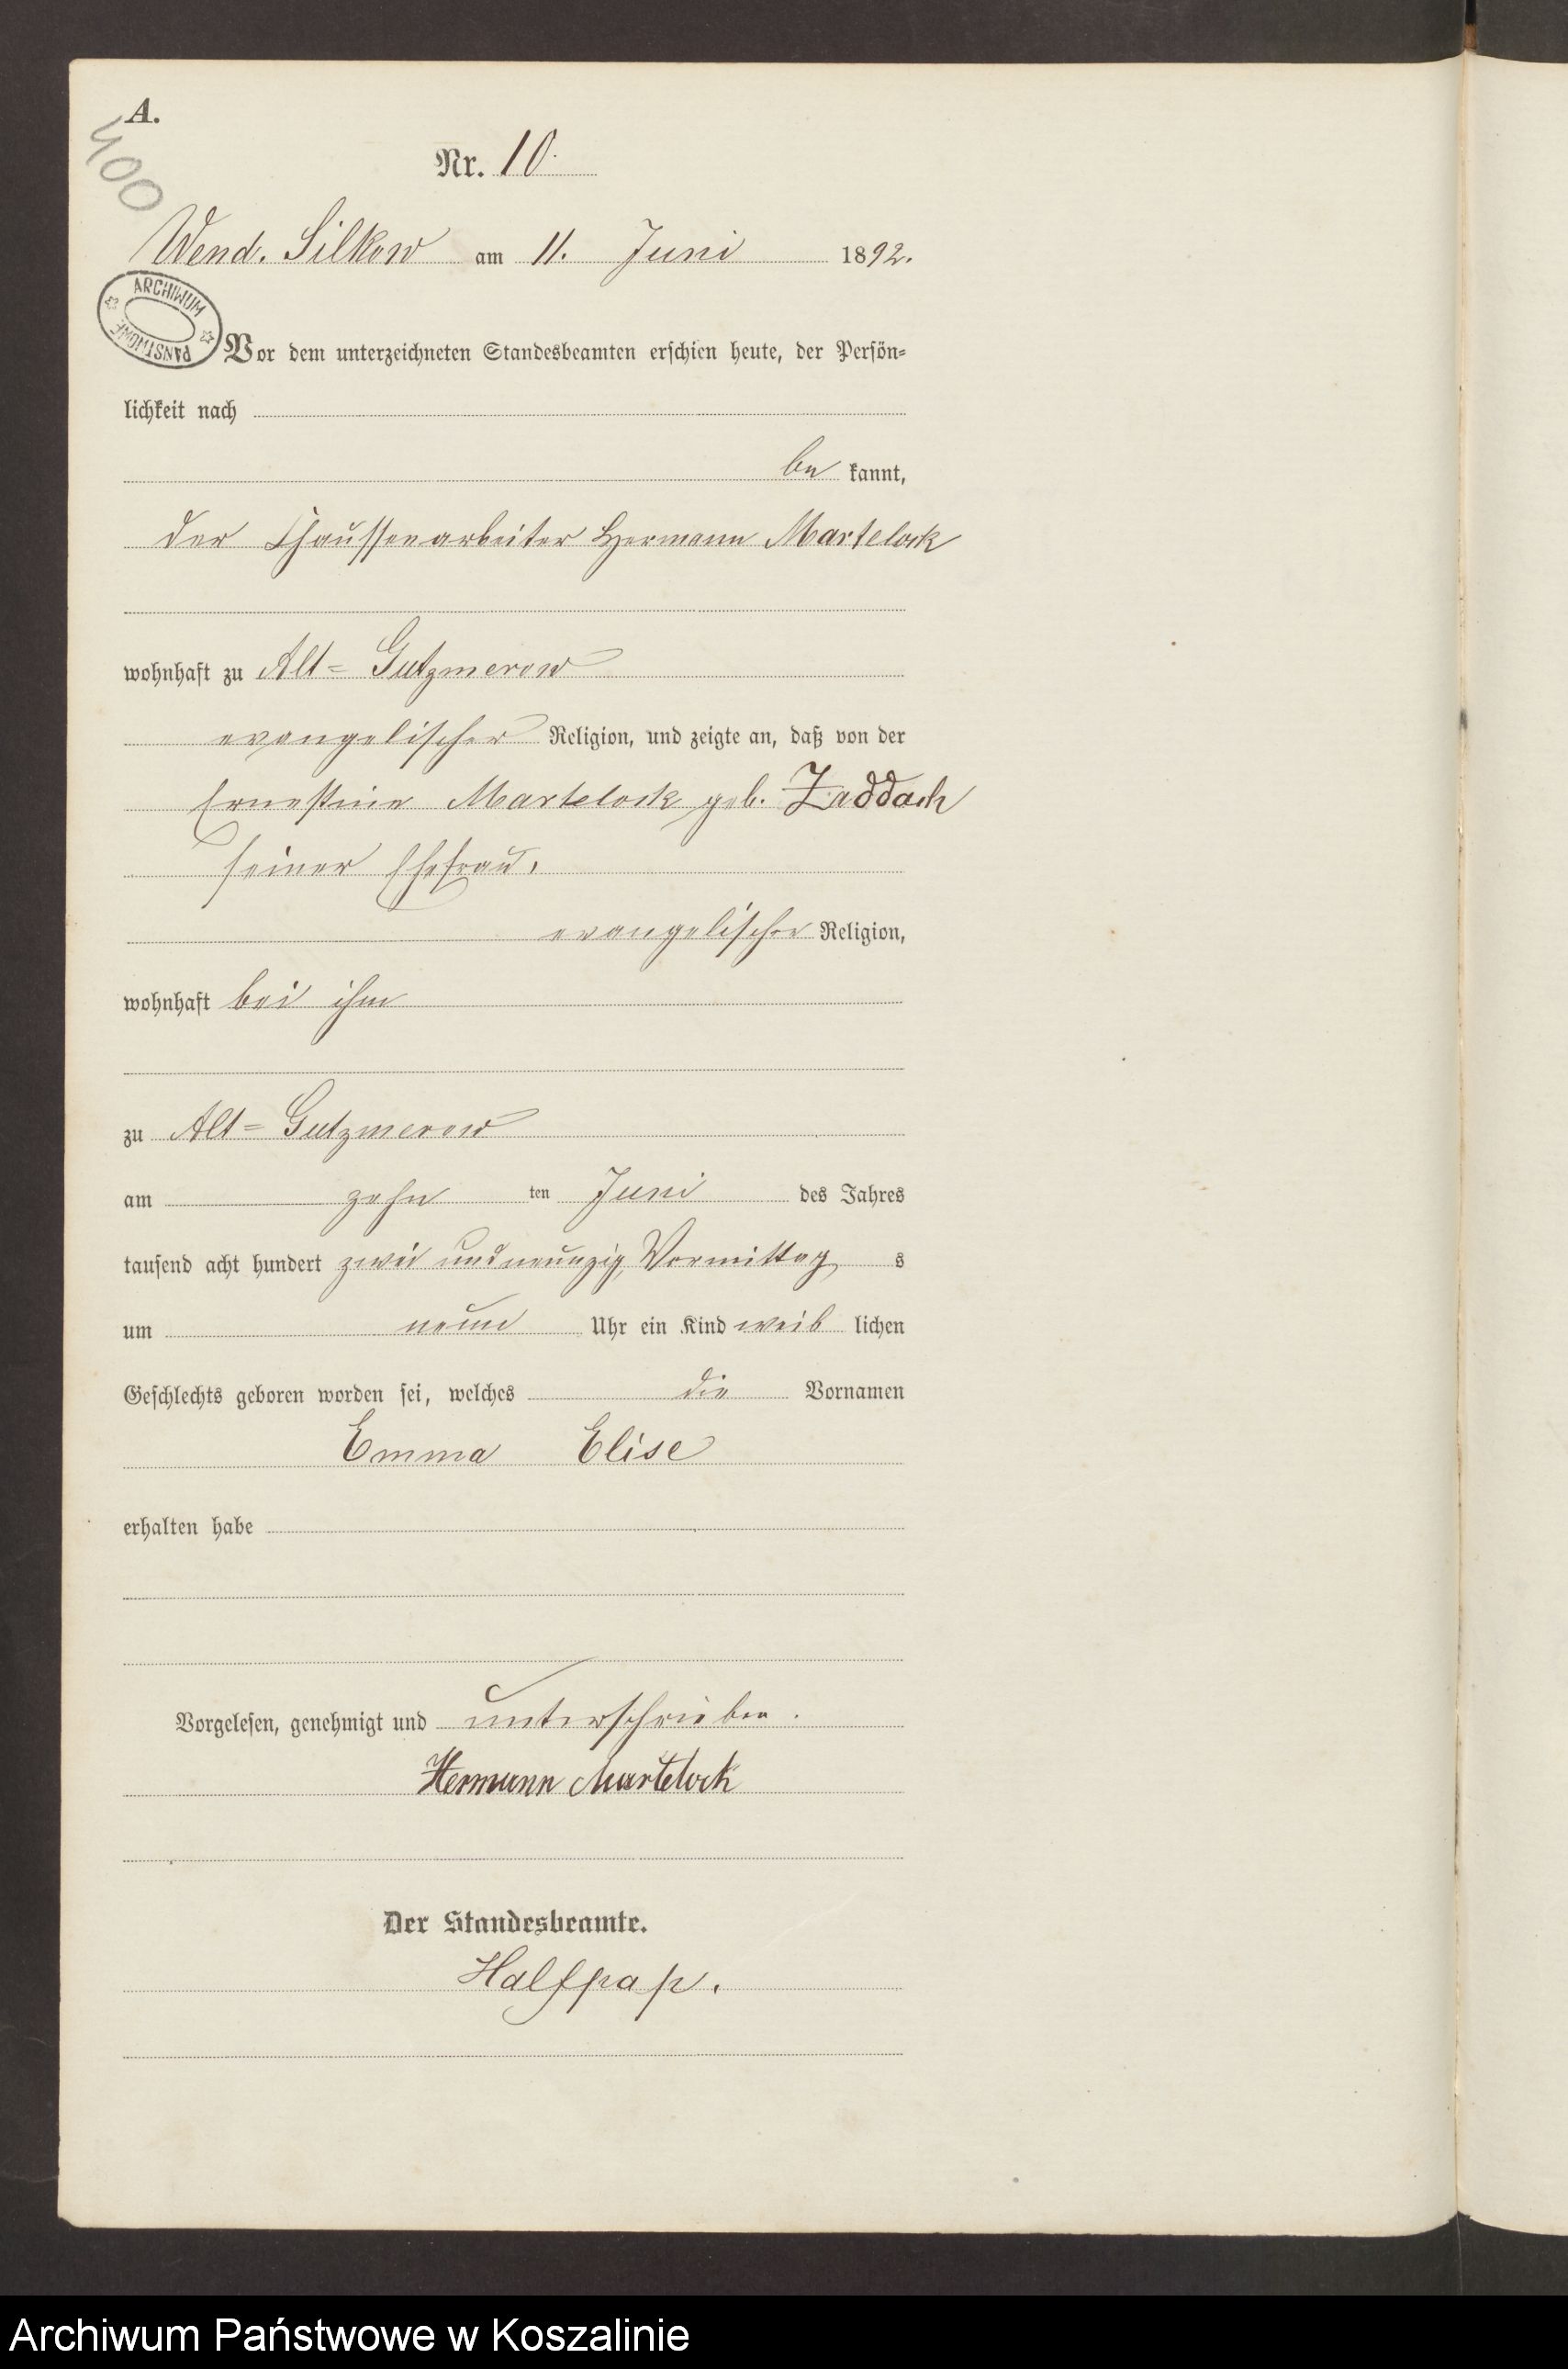 A.
400
Nr. 10.
Wend. Silkow am 11. Juni 1892.
ARCHIWUM PAŃSTWOWE
Vor dem unterzeichneten Standesbeamten erschien heute, der Persön=
lichkeit nach
be kannt,
der Chausseearbeiter Hermann Martelock
wohnhaft zu Alt=Gutzmerow
evangelischer Religion, und zeigte an, daß von der
Ernestine Martelock geb. Zaddach
seiner Ehefrau,
evangelischer Religion,
wohnhaft bei ihm
zu Alt=Gutzmerow
am zehn ten Juni des Jahres
tausend acht hundert zwei und neunzig, Vormittag s
um neun Uhr ein Kind weib lichen
Geschlechts geboren worden sei, welches die Vornamen
Emma Elise
erhalten habe
Vorgelesen, genehmigt und unterschrieben.
Hermann Martelock
Der Standesbeamte.
Halfpap.
Archiwum Państwowe w Koszalinie